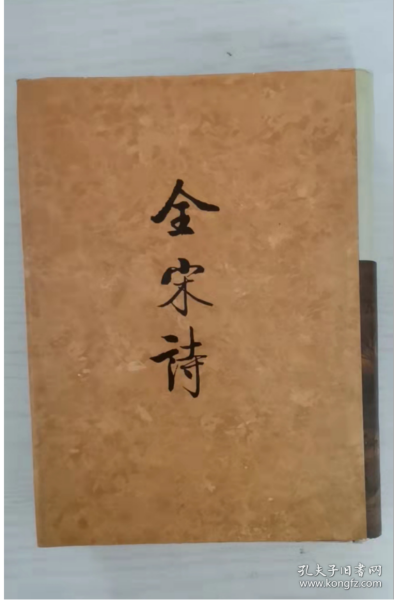 全宋詩
孔夫子旧书网
www.kongfz.com